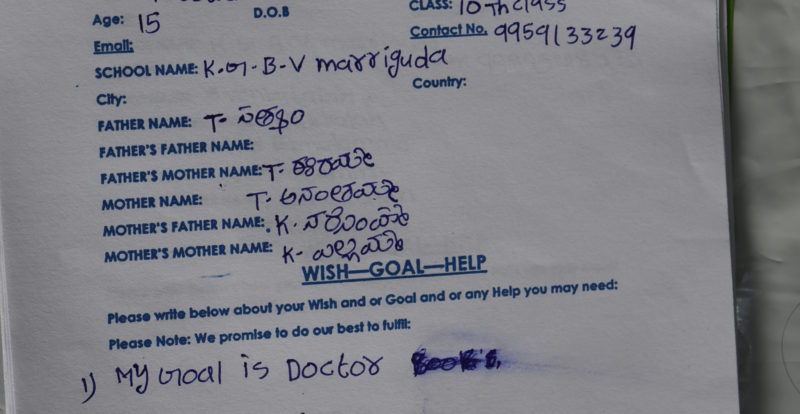 Age: 15 D.O.B CLASS: 10Th Class
Email: Contact No. 9959133239
SCHOOL NAME: K.G-B-V marriguda
City: Country:
FATHER NAME: T-
FATHER'S FATHER NAME:
FATHER'S MOTHER NAME: T-
MOTHER NAME: T-
MOTHER'S FATHER NAME: K.
MOTHER'S MOTHER NAME: K-
WISH—GOAL—HELP
Please write below about your Wish and or Goal and or any Help you may need:
Please Note: We promise to do our best to fulfil:
1) My Goal is Doctor